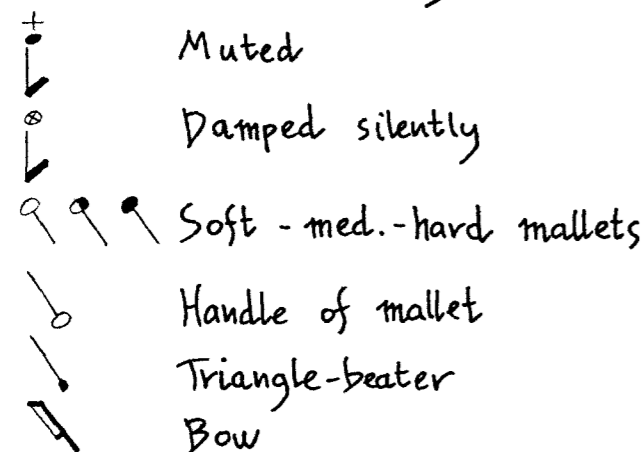 Muted
Damped silently
Soft - med. - hard mallets
Handle of mallet
Triangle-beater
Bow